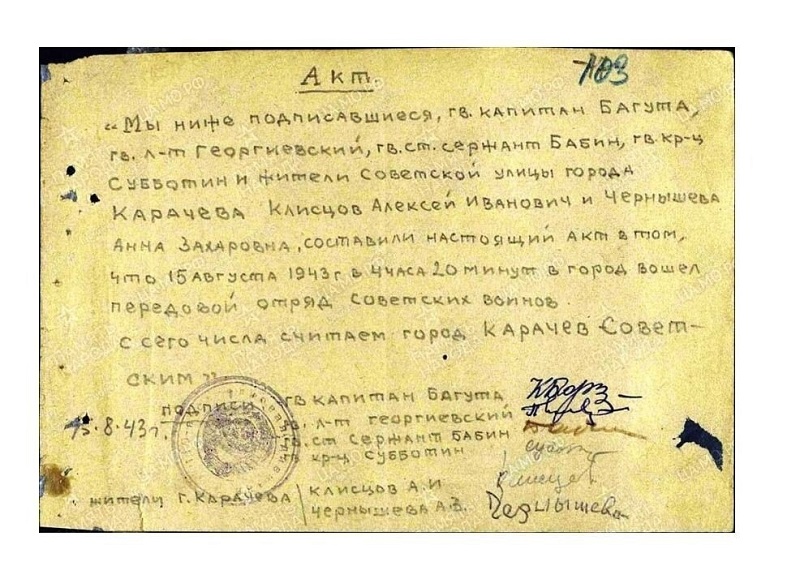 Акт
703
„Мы ниже подписавшиеся, гв. капитан Багута,
гв. л-т Георгиевский, гв. ст. сержант Бабин, гв. кр-ц
Субботин и жители Советской улицы города
Карачева Клисцов Алексей Иванович и Чернышева
Анна Захаровна, составили настоящий акт в том,
что 15 августа 1943 г в 4 часа 20 минут в город вошел
передовой отряд советских воинов.
С сего числа считаем город Карачев Совет-
ским"
подписи
гв капитан Багута
15.8.43 г.
л-т Георгиевский
гв. ст сержант Бабин
кр-ц Субботин
жители г. Карачева
Клисцов А. И
Чернышева А. З.
Клисцов
Чернышева